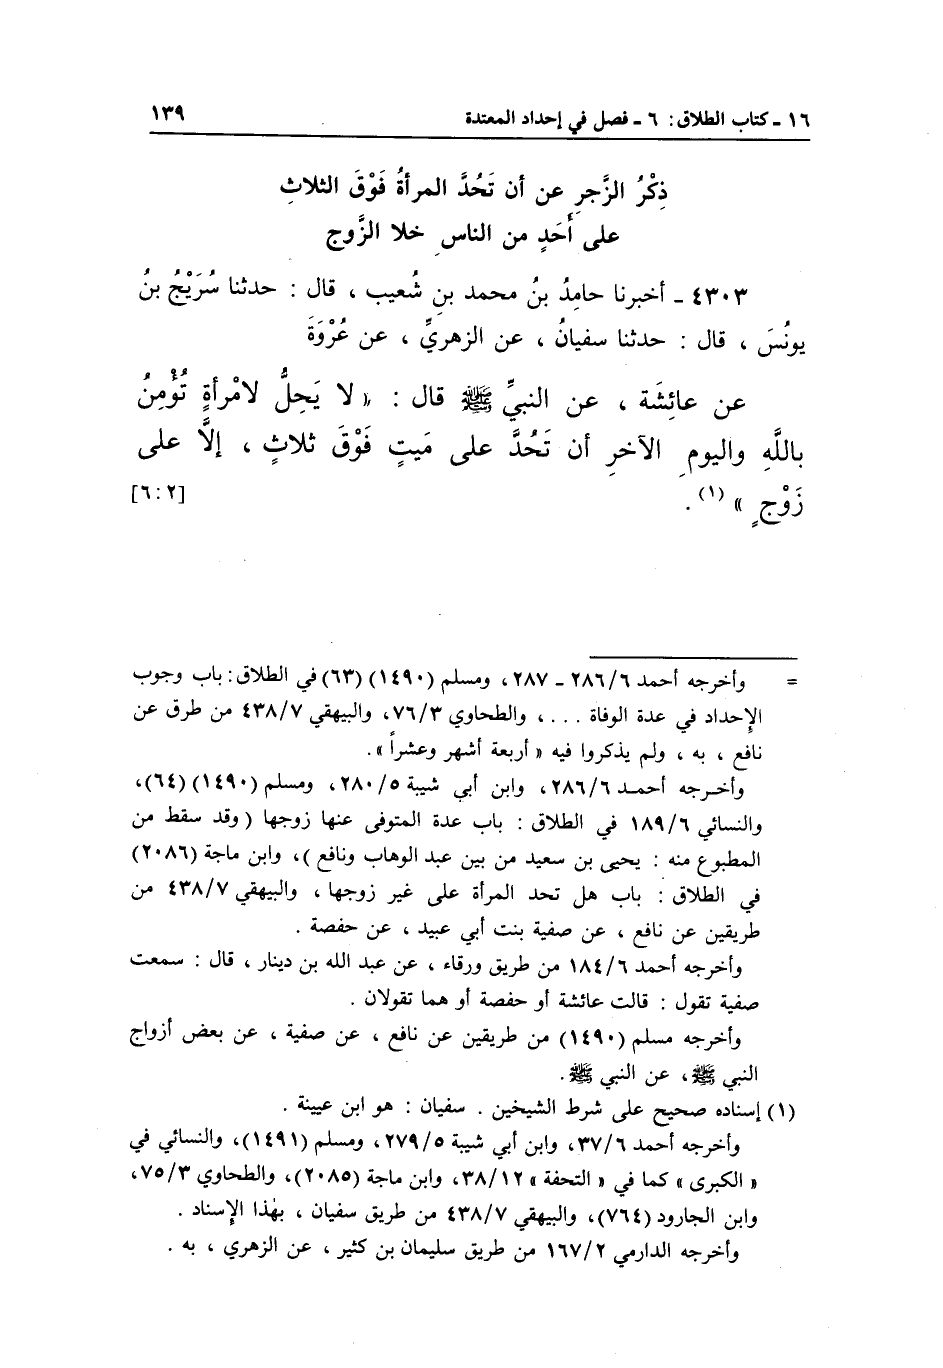 ١٦ - كتاب الطلاق: ٦ - فصل في إحداد المعتدة ١٣٩
ذِكْرُ الزَّجرِ عن أن تَحُدَّ المرأةُ فَوْقَ الثلاثِ
على أَحَدٍ من الناسِ خلا الزَّوجِ
٤٣٠٣ - أخبرنا حامِدُ بنُ محمد بنِ شُعيب ، قال : حدثنا سُرَيْجُ بنُ
يونُسَ ، قال : حدثنا سفيانُ ، عن الزهريِّ ، عن عُرْوَةَ
عن عائِشَة ، عن النبيِّ ﷺ قال : « لا يَحِلُّ لامْرأةٍ تُؤْمِنُ
باللَّهِ واليومِ الآخرِ أن تَحُدَّ على مَيتٍ فَوْقَ ثلاثٍ ، إلَّا على
زَوْجٍ » (١) . [٢ : ٦]
= وأخرجه أحمد ٢٨٦/٦ - ٢٨٧، ومسلم (١٤٩٠) (٦٣) في الطلاق: باب وجوب
الإحداد في عدة الوفاة . . . ، والطحاوي ٧٦/٣، والبيهقي ٤٣٨/٧ من طرق عن
نافع ، به ، ولم يذكروا فيه « أربعة أشهر وعشراً ».
وأخرجه أحمد ٢٨٦/٦، وابن أبي شيبة ٢٨٠/٥، ومسلم (١٤٩٠) (٦٤)،
والنسائي ١٨٩/٦ في الطلاق : باب عدة المتوفى عنها زوجها ( وقد سقط من
المطبوع منه : يحيى بن سعيد من بين عبد الوهاب ونافع )، وابن ماجة (٢٠٨٦)
في الطلاق : باب هل تحد المرأة على غير زوجها ، والبيهقي ٤٣٨/٧ من
طريقين عن نافع ، عن صفية بنت أبي عبيد ، عن حفصة .
وأخرجه أحمد ١٨٤/٦ من طريق ورقاء ، عن عبد الله بن دينار ، قال : سمعت
صفية تقول : قالت عائشة أو حفصة أو هما تقولان .
وأخرجه مسلم (١٤٩٠) من طريقين عن نافع ، عن صفية ، عن بعض أزواج
النبي ﷺ، عن النبي ﷺ.
(١) إسناده صحيح على شرط الشيخين . سفيان : هو ابن عيينة .
وأخرجه أحمد ٣٧/٦، وابن أبي شيبة ٢٧٩/٥، ومسلم (١٤٩١)، والنسائي في
« الكبرى » كما في « التحفة » ٣٨/١٢، وابن ماجة (٢٠٨٥)، والطحاوي ٧٥/٣،
وابن الجارود (٧٦٤)، والبيهقي ٤٣٨/٧ من طريق سفيان ، بهٰذا الإسناد .
وأخرجه الدارمي ١٦٧/٢ من طريق سليمان بن كثير ، عن الزهري ، به .